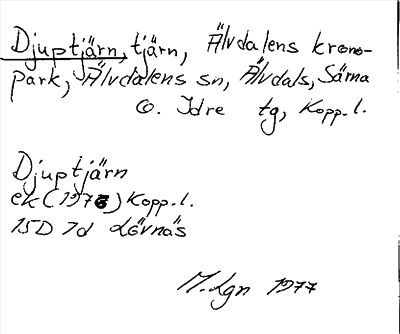 Djuptjärn, tjärn, Älvdalens krono-
park, Älvdalens sn, Älvdals, Särna
o. Idre tg, Kopp. l.
Djuptjärn
ek (1976) Kopp. l.
15D 7d Lövnäs
M. Lgn 1977